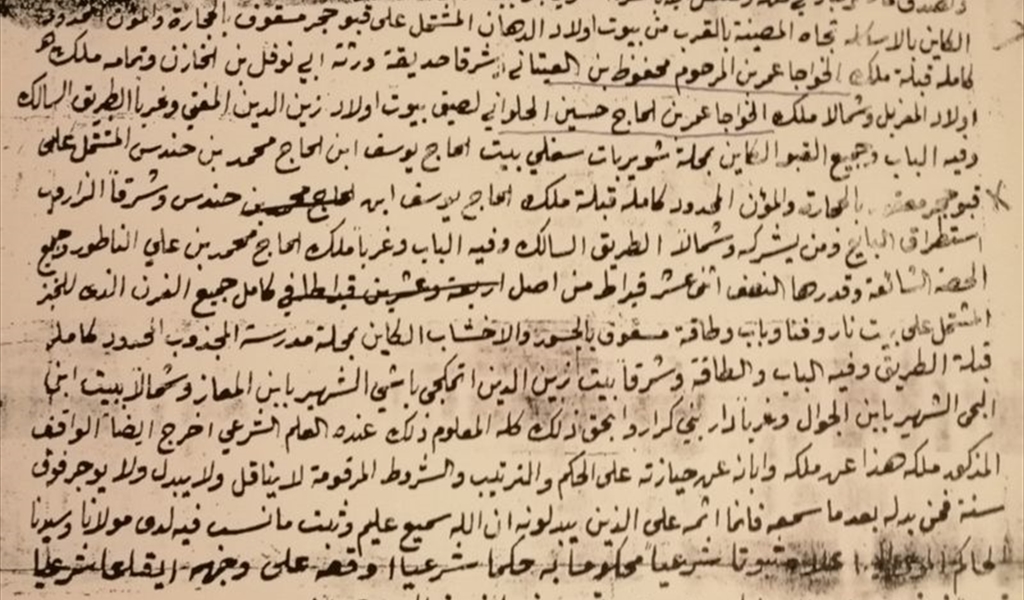 الكاين بالاسكلة تجاه المصبنة بالقرب من بيوت اولاد الدهان المشتمل على قبو حجر مسقوف بالحجارة والمؤن المحدود
كاملة قبلة ملك الخواجا عمر بن المرحوم محفوظ بن العيتاني شرقا حديقة ورثة ابي نوفل بن الخازن وتمامه ملك
اولاد المغربل وشمالا ملك الخواجا عمر بن الحاج حسين الحلواني لصيق بيوت اولاد زين الدين المفتي وغربا الطريق السالك
وفيه الباب وجميع القبو الكاين بمحلة شويربات سفلي بيت الحاج يوسف ابن الحاج محمد بن حندس المشتمل على
قبو حجر بالحجارة والمؤن المحدود كاملة قبلة ملك الحاج يوسف ابن الحاج محمد بن حندس وشرقا الزاروب
استطراق البايع ومن يشركه وشمالا الطريق السالك وفيه الباب وغربا ملك الحاج محمد بن علي الناطور وجميع
الحصة الشائعة وقدرها النصف اثنى عشر قيراط من اصل اربعة وعشرين قيراطا في كامل جميع الفرن الذى للخبز
المشتمل على بيت نار وفنا وباب وطاقة مسقوف بالجسور والاخشاب الكاين بمحلة مدرسة المجذوب المحدود كاملة
قبلة الطريق وفيه الباب والطاقة وشرقا بيت زين الدين اتمكجي باشي الشهير بابن المعاز وشمالا بيت ابن
البى الشهير بابن الجوال وغربا دار بني كرار وابحق ذلك كله المعلوم ذلك عنده العلم الشرعي اخرج ايضا الواقف
المذكور ملكه هذا عن ملكه وابانه عن حيازته على الحكم والترتيب والشروط المرقومة لا يناقل ولا يبدل ولا يوجر فوق
سنة فمن بدله بعد ما سمعه فانما اثمه على الذين يبدلونه ان الله سميع عليم وثبت ما نسب فيه لدى مولانا وسيدنا
الحاكم اعلاه ثبوتا شرعيا محكوما به حكما شرعيا اوقعه على وجهه ايقاعا شرعيا